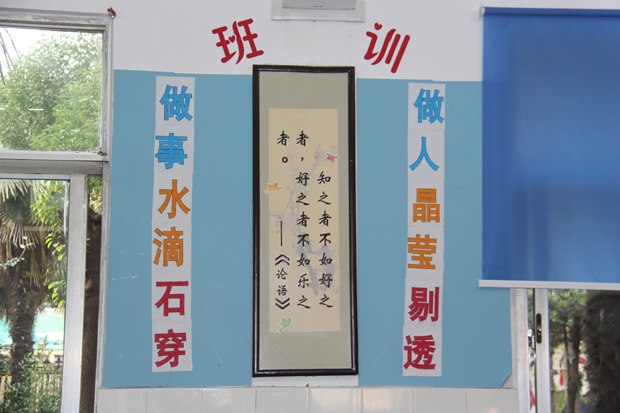 班训
做人晶莹剔透
知之者不如好之
者，好之者不如乐之
者。——《论语》
做事水滴石穿